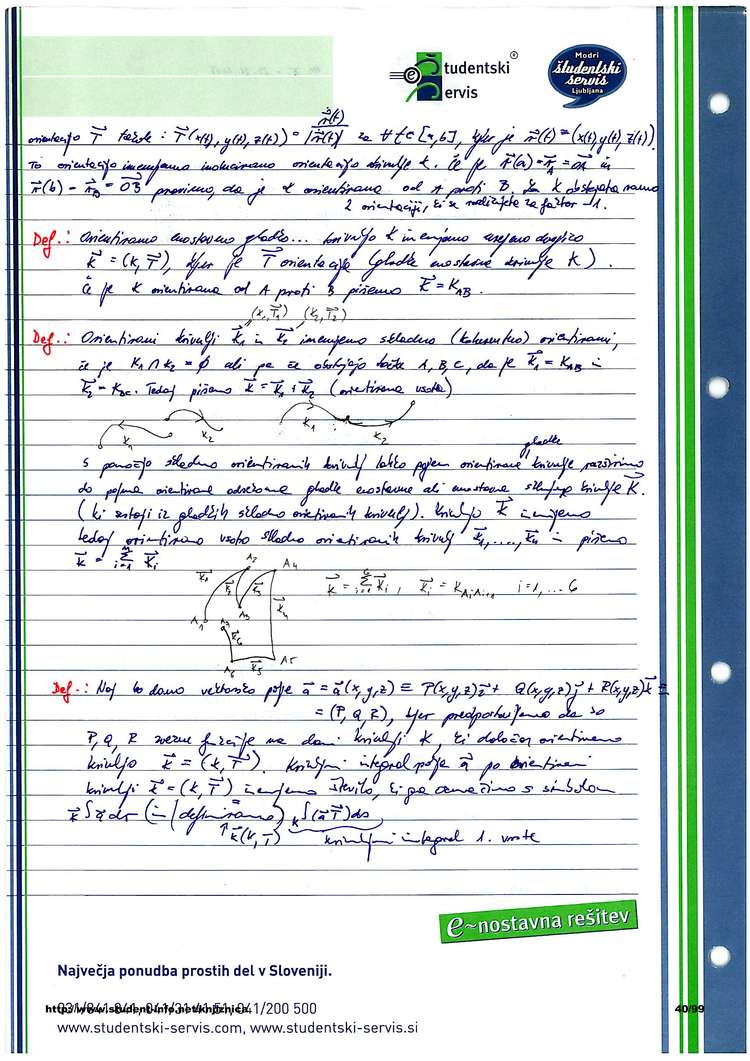 Študentski
Servis
®
Modri
študentski
servis
Ljubljana
orientacijo T⃗ točk: T⃗(x(t), y(t), z(t)) = ṙ⃗(t)/|ṙ⃗(t)| za ∀t∈[a,b], kjer je r⃗(t) = (x(t), y(t), z(t)).
To orientacijo imenujemo inducirano orientacijo krivulje K. Če je r⃗(a) = r⃗_A = OA⃗ in
r⃗(b) = r⃗_B = OB⃗ pravimo, da je K orientirana od A proti B. Za K obstajata samo
2 orientaciji, ki se razlikujeta za faktor -1.
Def.: Orientirano enostavno gladko... krivuljo K imenujemo urejeno dvojico
K⃗ = (K, T⃗), kjer je T⃗ orientacija (gladke enostavne krivulje K).
Če je K orientirana od A proti B pišemo K⃗ = K_AB.
(K₁, T⃗₁) (K₂, T⃗₂)
Def.: Orientirani krivulji K⃗₁ in K⃗₂ imenujemo skladno (koherentno) orientirani,
če je K₁ ∩ K₂ = ∅ ali pa če obstajajo točke A, B, C, da je K⃗₁ = K_AB in
K⃗₂ = K_BC. Tedaj pišemo K⃗ = K⃗₁ + K⃗₂ (orientirana vsota)
K₁ K₂ K₁ K₂
gladke
S pomočjo skladno orientiranih krivulj lahko pojem orientirane krivulje razširimo
do pojma orientirane odsekoma gladke enostavne ali enostavne sklenjene krivulje K.
(ki sestoji iz gladkih skladno orientiranih krivulj). Krivuljo K⃗ imenujemo
tedaj orientirano vsoto skladno orientiranih krivulj K⃗₁, ..., K⃗ₙ in pišemo
K⃗ = Σ_{i=1}^{n} K⃗ᵢ
K⃗₁ A₂ K⃗₂ K⃗₃ A₄ K⃗ = Σ_{i=1}^{6} K⃗ᵢ, K⃗ᵢ = K_{AᵢAᵢ₊₁} i=1, ... 6
A₁ A₃ K⃗₄
K⃗₆
A₆ K⃗₅ A₅
Def.: Naj bo dano vektorsko polje a⃗ = a⃗(x,y,z) ≡ P(x,y,z)i⃗ + Q(x,y,z)j⃗ + R(x,y,z)k⃗ ≡
= (P, Q, R), kjer predpostavljamo da so
P, Q, R zvezne funkcije na dani krivulji K, ki določa orientirano
krivuljo K⃗ = (K, T⃗). Krivuljni integral polja a⃗ po orientirani
krivulji K⃗ = (K, T⃗) imenujemo število, ki ga označimo s simbolom
K⃗∫a⃗ dr⃗ (in definiramo) = K∫(a⃗T⃗)ds
↑K⃗(K, T⃗) krivuljni integral 1. vrste
e~nostavna rešitev
Največja ponudba prostih del v Sloveniji.
http://www.student-info.net/knjiznica
40/99
www.studentski-servis.com, www.studentski-servis.si